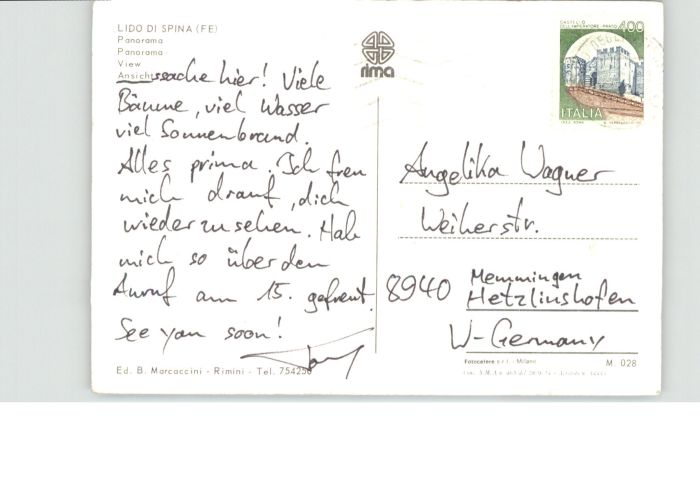 LIDO DI SPINA (FE)
Panorama
Panorama
View
Ansichtssache hier! Viele
Bäume, viel Wasser
viel Sonnenbrand.
Alles prima. Ich freu
mich drauf, dich
wiederzusehen. Hab
mich so über den
Anruf am 15. gefreut.
See you soon!
Ed. B. Marcaccini - Rimini - Tel. 754250
rima
CASTELLO
DELL'IMPERATORE - PRATO 400
ITALIA
Angelika Wagner
Weiherstr.
8940 Memmingen
Hetzlinshofen
W-Germany
Fotocetere s.r.l. - Milano
M. 028